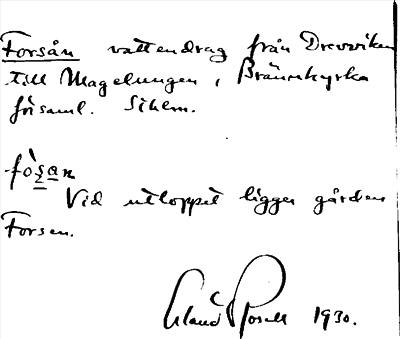 Forsån vattendrag från Drevviken
till Magelungen i Brännkyrka
församl. Sthlm.
fò̀san
Vid utloppet ligger gården
Forsen.
Erland Rosell 1930.